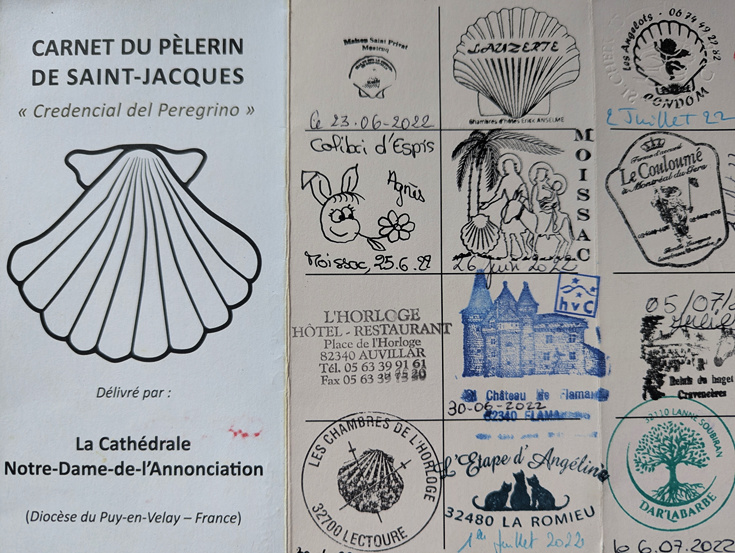 CARNET DU PÈLERIN
DE SAINT-JACQUES
« Credencial del Peregrino »
Délivré par :
La Cathédrale
Notre-Dame-de-l'Annonciation
(Diocèse du Puy-en-Velay – France)
Maison Saint Privat
Montcuq
le 23-06-2022
LAUZERTE
Chambres d'hôtes Erick ANSELME
Les Angelots - 06 74 49 27 82
CONDOM
2 Juillet 22
Colibri d'Espis
Agnès
Moissac, 25.6.22
MOISSAC
26 juin 2022
Le Couloumé
à Montréal du Gers
L'HORLOGE
HÔTEL - RESTAURANT
Place de l'Horloge
82340 AUVILLAR
Tél. 05 63 39 91 61
Fax 05 63 39
hvC
Château de Flamarens
30-06-2022
05/07/2
Relais du haget
Cravencères
LES CHAMBRES DE L'HORLOGE
32700 LECTOURE
L'Etape d'Angéline
32480 LA ROMIEU
1er juillet 2022
32110 LANNE SOUBIRAN
DARLABARBE
le 6.07.2022